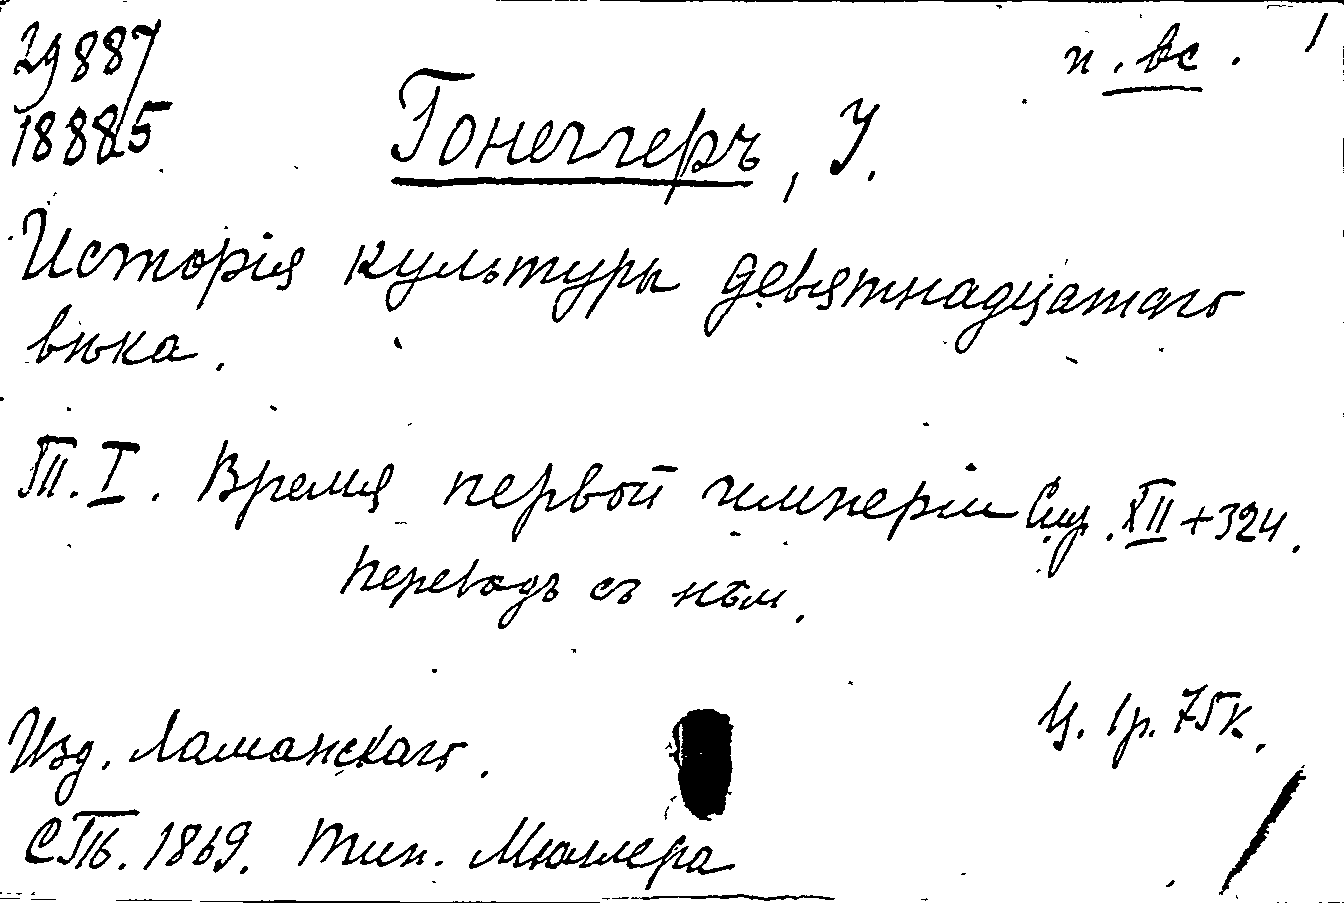 29887
п. вс.
18885
Гонеггеръ, У.
Исторія культуры девятнадцатаго
вѣка.
Т. I. Время первой имперіи Стр. XII + 324.
Переводъ съ нѣм.
Ц. 1р. 75к.
Изд. Ламанскаго.
СПб. 1869. Тип. Мюллера